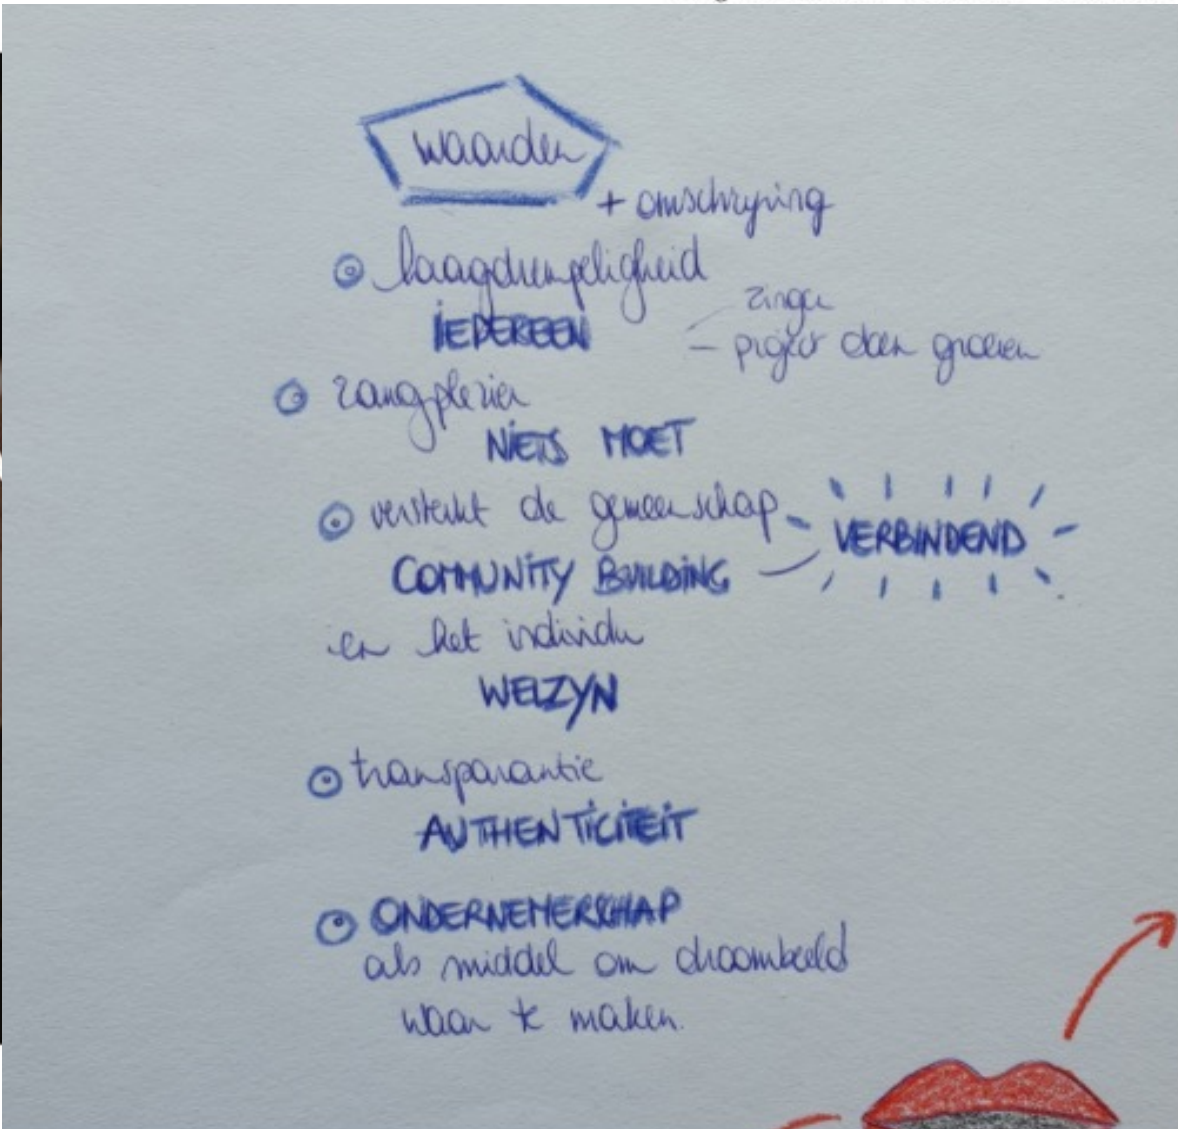 waarden
+ omschrijving
laagdrempeligheid
IEDEREEN
- zingen
- project doen groeien
zangplezier
NIETS MOET
versterkt de gemeenschap
VERBINDEND
COMMUNITY BUILDING
en het individu
WELZYN
transparantie
AUTHENTICITEIT
ONDERNEMERSCHAP
als middel om droombeeld
waar te maken.